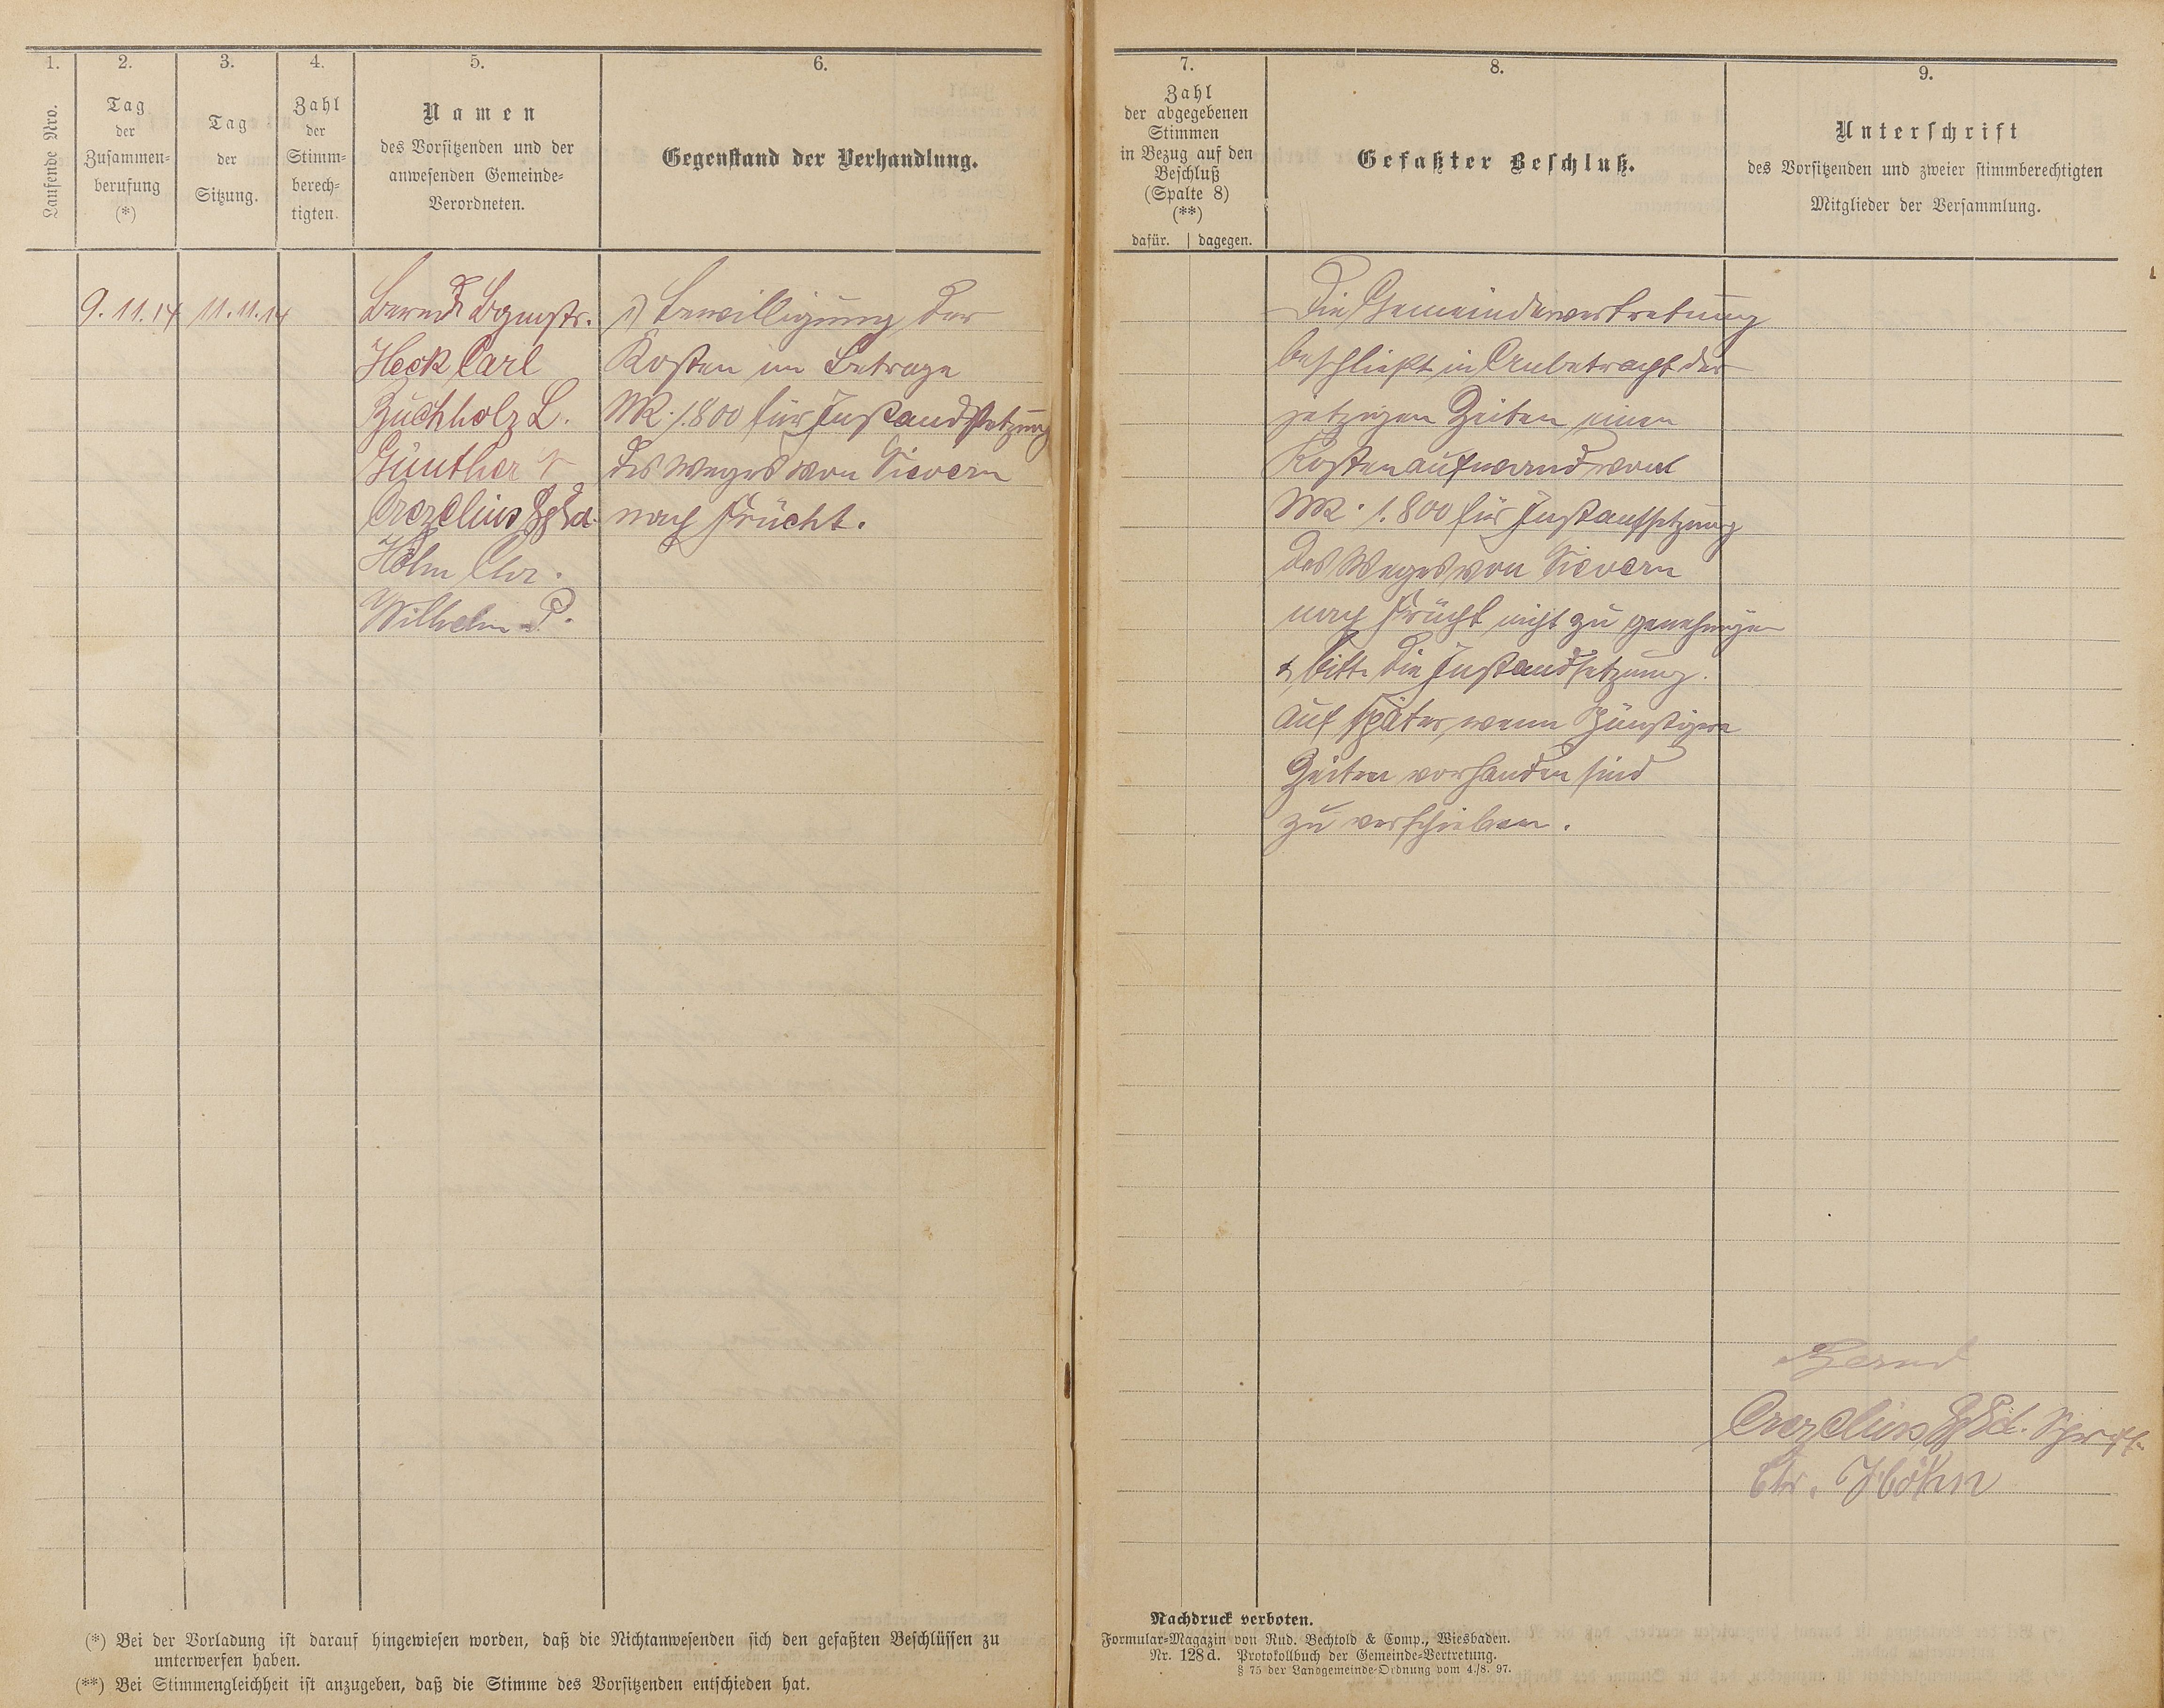 1.
2.
3.
4.
5.
6.
Laufende Nro.
Tag
der
Zusammen-
berufung
(*)
Tag
der
Sitzung.
Zahl
der
Stimm-
berech-
tigten.
Namen
des Vorsitzenden und der
anwesenden Gemeinde-
Verordneten.
Gegenstand der Verhandlung.
9.11.14
11.11.14
Bernd Bgmstr.
Heck Carl
Buchholz L.
Günther
Crezelius
Höhn Chr.
Wilhelm P.
1) Bewilligung der
Kosten im Betrage
Mk. 1.800 für Instandsetzung
des Weges von Sievern
nach Frücht.
7.
8.
9.
Zahl
der abgegebenen
Stimmen
in Bezug auf den
Beschluß
(Spalte 8)
(**)
dafür. | dagegen.
Gefaßter Beschluß.
Unterschrift
des Vorsitzenden und zweier stimmberechtigten
Mitglieder der Versammlung.
Die Gemeindevertretung
beschließt in Anbetracht der
jetzigen Zeiten einen
Kostenaufwand von
Mk. 1.800 für Instandsetzung
des Weges von Sievern
nach Frücht nicht zu genehmigen
& bitte die Instandsetzung
auf später, wenn günstigere
Zeiten vorhanden sind
zu verschieben.
Bernd
Crezelius
Chr. Höhn
(*) Bei der Vorladung ist darauf hingewiesen worden, daß die Nichtanwesenden sich den gefaßten Beschlüssen zu
unterwerfen haben.
(**) Bei Stimmengleichheit ist anzugeben, daß die Stimme des Vorsitzenden entschieden hat.
Nachdruck verboten.
Formular-Magazin von Rud. Bechtold & Comp., Wiesbaden.
Nr. 128d. Protokollbuch der Gemeinde-Vertretung.
§ 75 der Landgemeinde-Ordnung vom 4./8. 97.